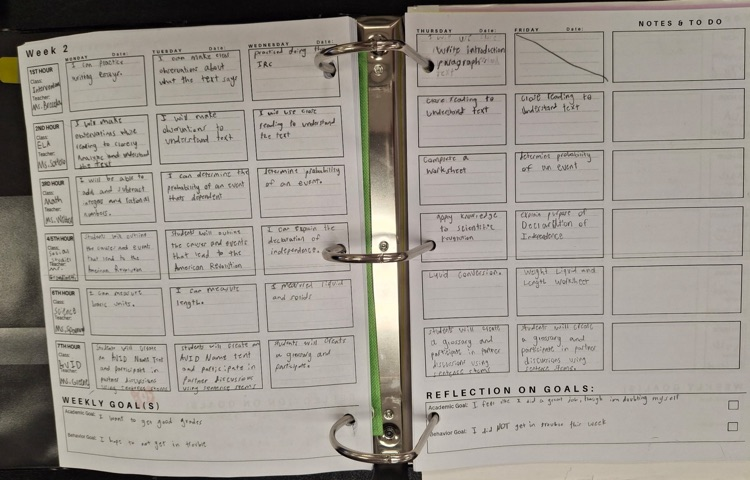 Week 2
MONDAY Date:
TUESDAY Date:
WEDNESDAY Date:
1ST HOUR
Class:
Intervention
Teacher:
I can practice
writing essays.
I can make
observations about
what the text says
practiced doing the
IRC
2ND HOUR
Class:
ELA
Teacher:
I will make
observations
reading to
Analyze and understand
the text
I will make
observations to
understand text
I will use close
reading to understand
the text
3RD HOUR
Class:
Math
Teacher:
I will be able to
add and subtract
integers and rational
numbers.
I can determine the
probability of an event
thats dependent
determine probability
of an event.
4/5TH HOUR
Class:
Social
studies
Teacher:
Students will outline
the causes and events
that lead to the
American Revolution
Students will outline
the causes and events
that lead to the
American Revolution
I can explain the
declaration of
independence.
6TH HOUR
Class:
Science
Teacher:
I can measure
basic units.
I can measure
length.
I measured liquid
and solids
7TH HOUR
Class:
AVID
Teacher:
Student will create
an AVID Name Tent
and participate in
partner discussions
using sentence stems
Students will create an
AVID Name tent
and participate in
partner discussions
using sentence stems
Students will create
a glossary and
participate.
WEEKLY GOAL(S)
Academic Goal: I want to get good grades
Behavior Goal: I hope to not get in trouble
THURSDAY Date:
FRIDAY Date:
NOTES & TO DO
Write introduction
paragraph
close reading to
understand text
close reading to
understand text
Complete a
worksheet
determine probability
of an event
apply knowledge
to scientific
explain purpose of
Declaration of
Independence
Liquid conversions.
Weight Liquid and
Length Worksheet
students will create
a glossary and
participate in partner
discussions using
sentence stems
Students will create
a glossary and
participate in partner
discussions using
sentence stems
REFLECTION ON GOALS:
Academic Goal: I feel like I did a great job, though im doubting myself
Behavior Goal: I did NOT get in trouble this week